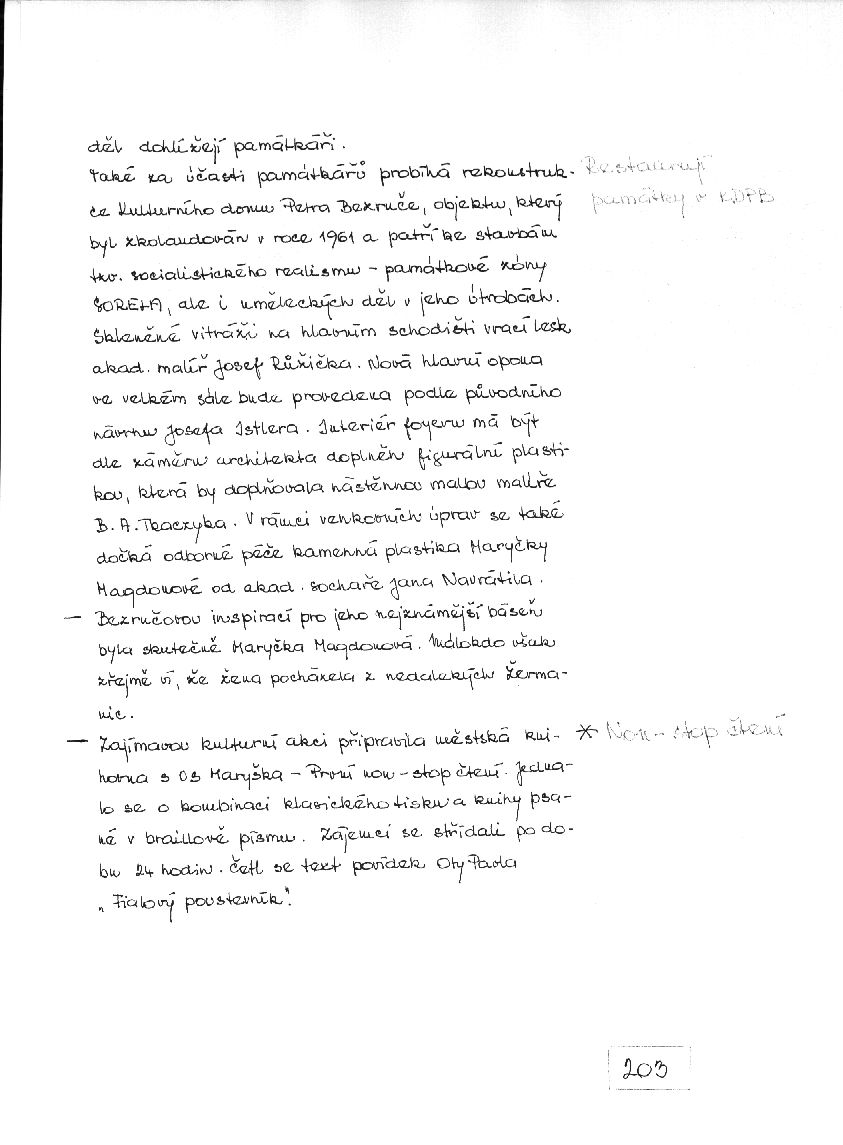 děl dohlížejí památkáři.
Také za účasti památkářů probíhá rekonstruk-
Restaurují
ce Kulturního domu Petra Bezruče, objektu, který
památky v KDPB
byl zkolaudován v roce 1961 a patří ke stavbám
tzv. socialistického realismu – památkové zóny
SORELA, ale i uměleckých děl v jeho útrobách.
Skleněné vitráži na hlavním schodišti vrací lesk
akad. malíř Josef Růžička. Nová hlavní opona
ve velkém sále bude provedena podle původního
návrhu Josefa Istlera. Interiér foyeru má být
dle záměru architekta doplněn figurální plasti-
kou, která by doplňovala nástěnnou malbu malíře
B. A. Tkaczyka. V rámci venkovních úprav se také
dočká odborné péče kamenná plastika Maryčky
Magdonové od akad. sochaře Jana Navrátila.
— Bezručovou inspirací pro jeho nejznámější báseň
byla skutečně Maryčka Magdonová. Málokdo však
zřejmě ví, že žena pocházela z nedalekých Žerma-
nic.
— Zajímavou kulturní akci připravila městská kni-
* Non-stop čtení
hovna s OS Maryška – První non-stop čtení. Jedna-
lo se o kombinaci klasického tisku a knihy psa-
né v braillově písmu. Zájemci se střídali po do-
bu 24 hodin. Četl se text povídek Oty Pavla
„Fialový poustevník".
203